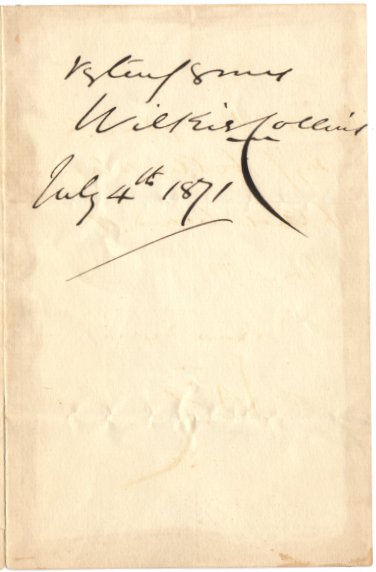 Vy truly yours
Wilkie Collins
July 4th 1871